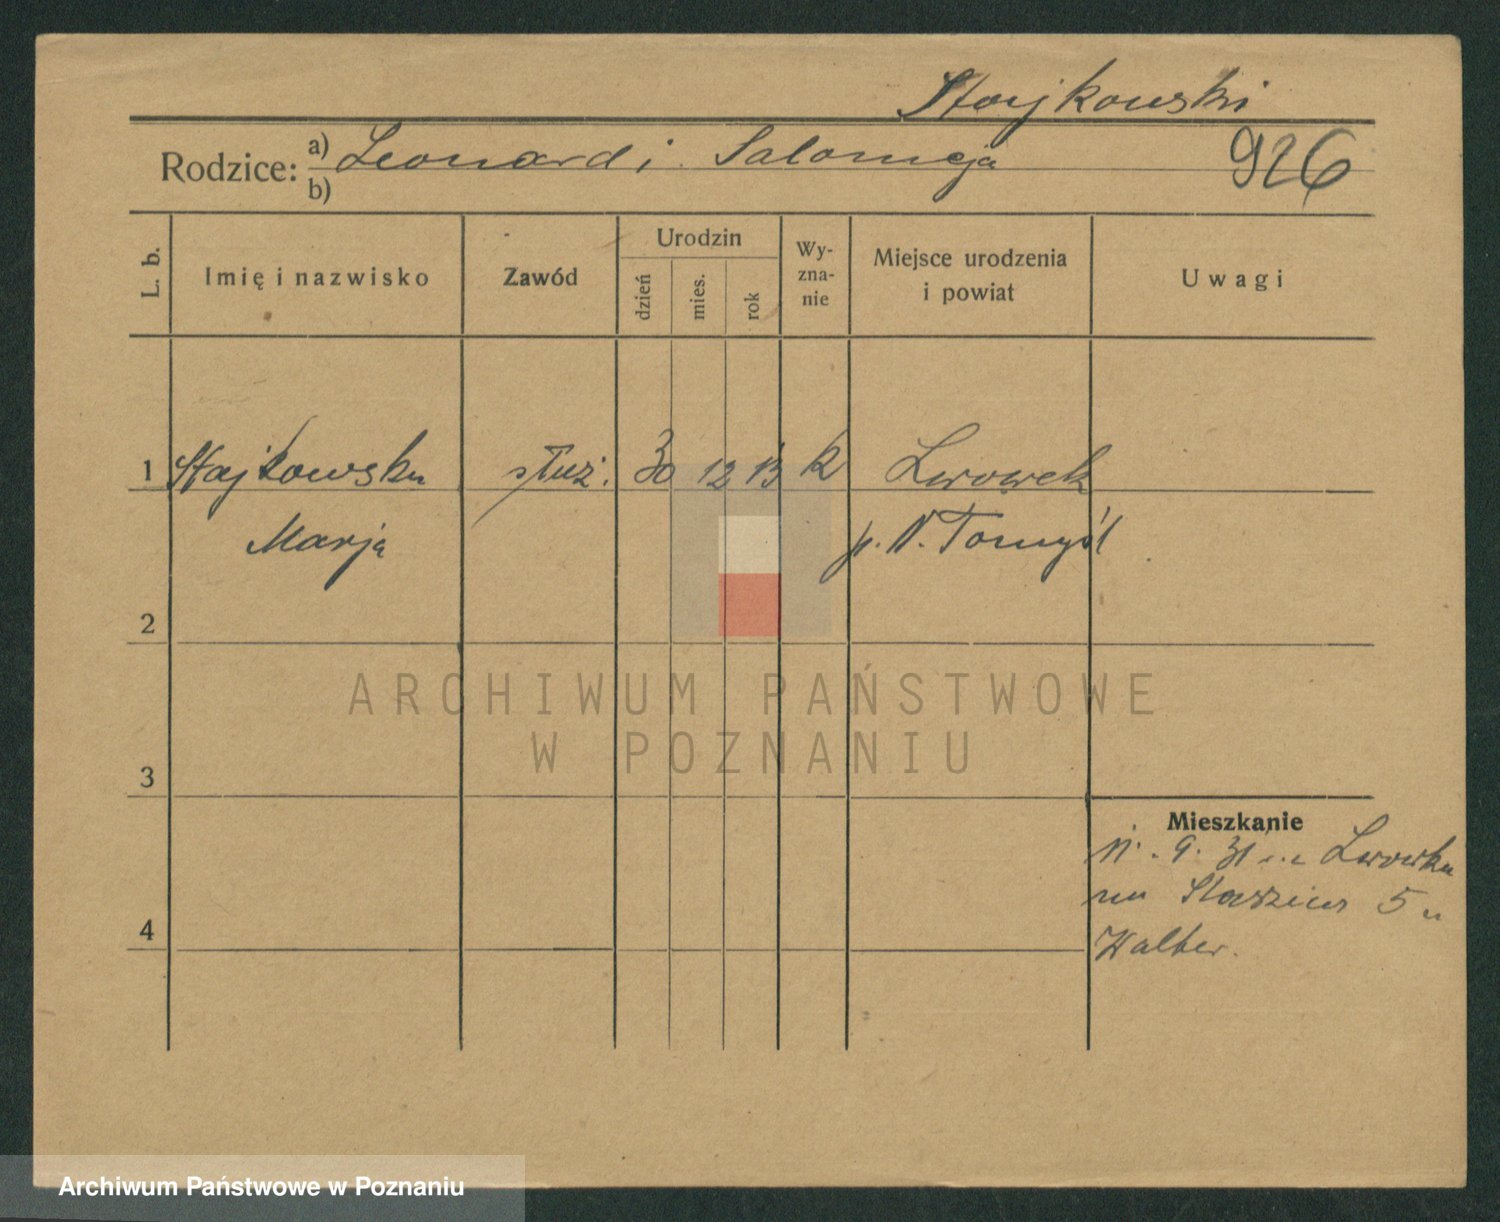 Stajkowski
Rodzice: a) Leonard i Salomeja
b)
926
L. b.
Imię i nazwisko
Zawód
Urodzin
dzień
mies.
rok
Wy-
zna-
nie
Miejsce urodzenia
i powiat
Uwagi
1 Stajkowska służ. 30 12 13 k Lwówek
Marja p. N. Tomyśl
2
3
4
ARCHIWUM PAŃSTWOWE
W POZNANIU
Mieszkanie
9. 31 Lwówka
na 5 u
Walter.
Archiwum Państwowe w Poznaniu